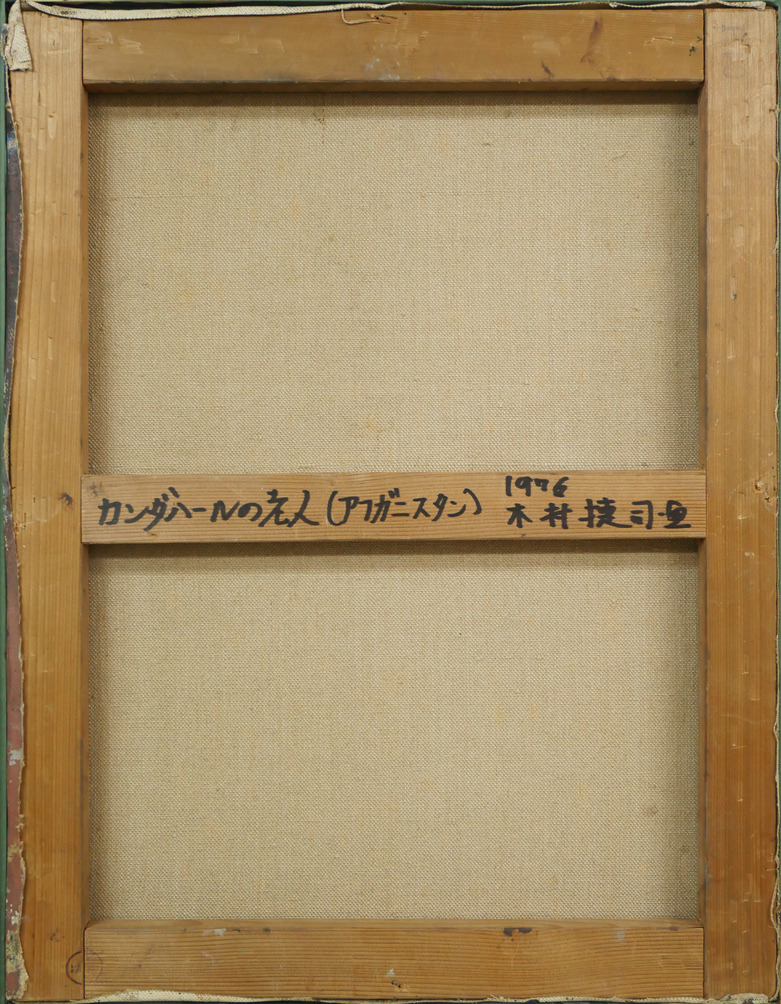 カンダハールの老人(アフガニスタン)
1976
木村捷司画